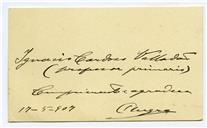 Ignacio Cardoso Valladão
(professor primario)
Cumprimenta e agradece
17-5-907